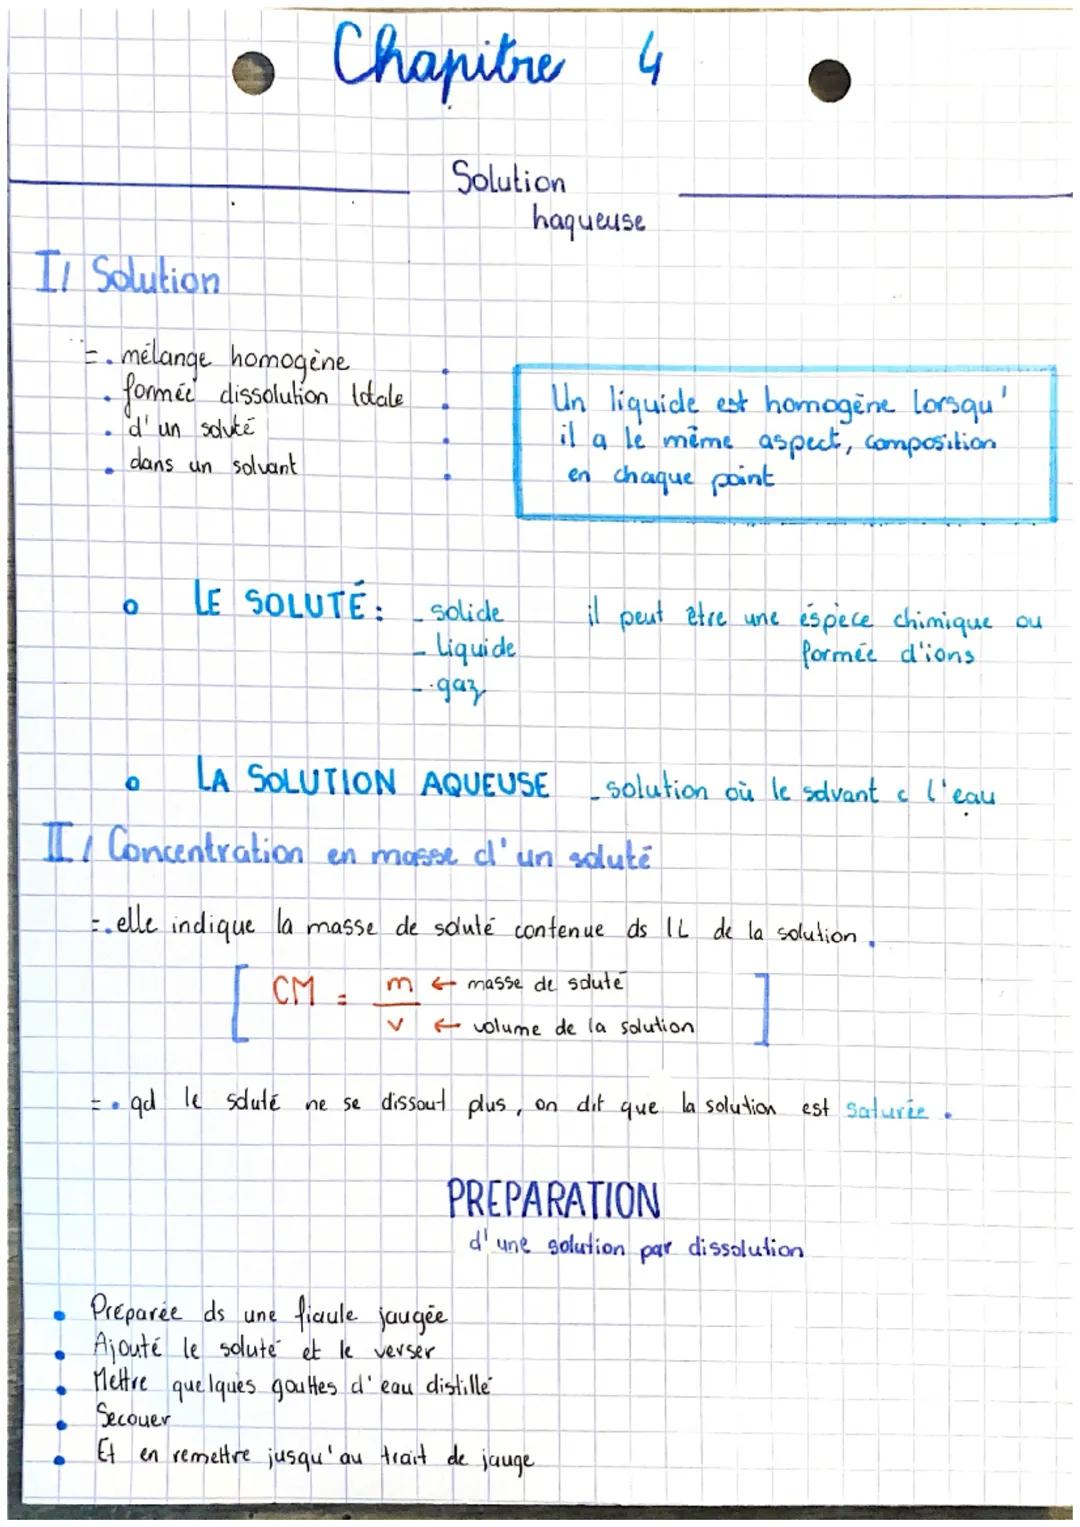 Chapitre 4
Solution
haqueuse
I/ Solution
= . mélange homogène
. formée dissolution totale
. d'un soluté
. dans un solvant
Un liquide est homogène lorsqu'
il a le même aspect, composition
en chaque point
o LE SOLUTÉ : - solide
- liquide
- gaz
il peut être une éspèce chimique ou
formée d'ions
o LA SOLUTION AQUEUSE - solution où le solvant c l'eau
II/ Concentration en masse d'un soluté
= . elle indique la masse de soluté contenue ds 1L de la solution.
[ CM = m ← masse de soluté
v ← volume de la solution ]
= . qd le soluté ne se dissout plus, on dit que la solution est saturée.
PREPARATION
d'une solution par dissolution
• Préparée ds une fiaule jaugée
• Ajouté le soluté et le verser
• Mettre quelques gouttes d'eau distillé
• Secouer
• Et en remettre jusqu'au trait de jauge